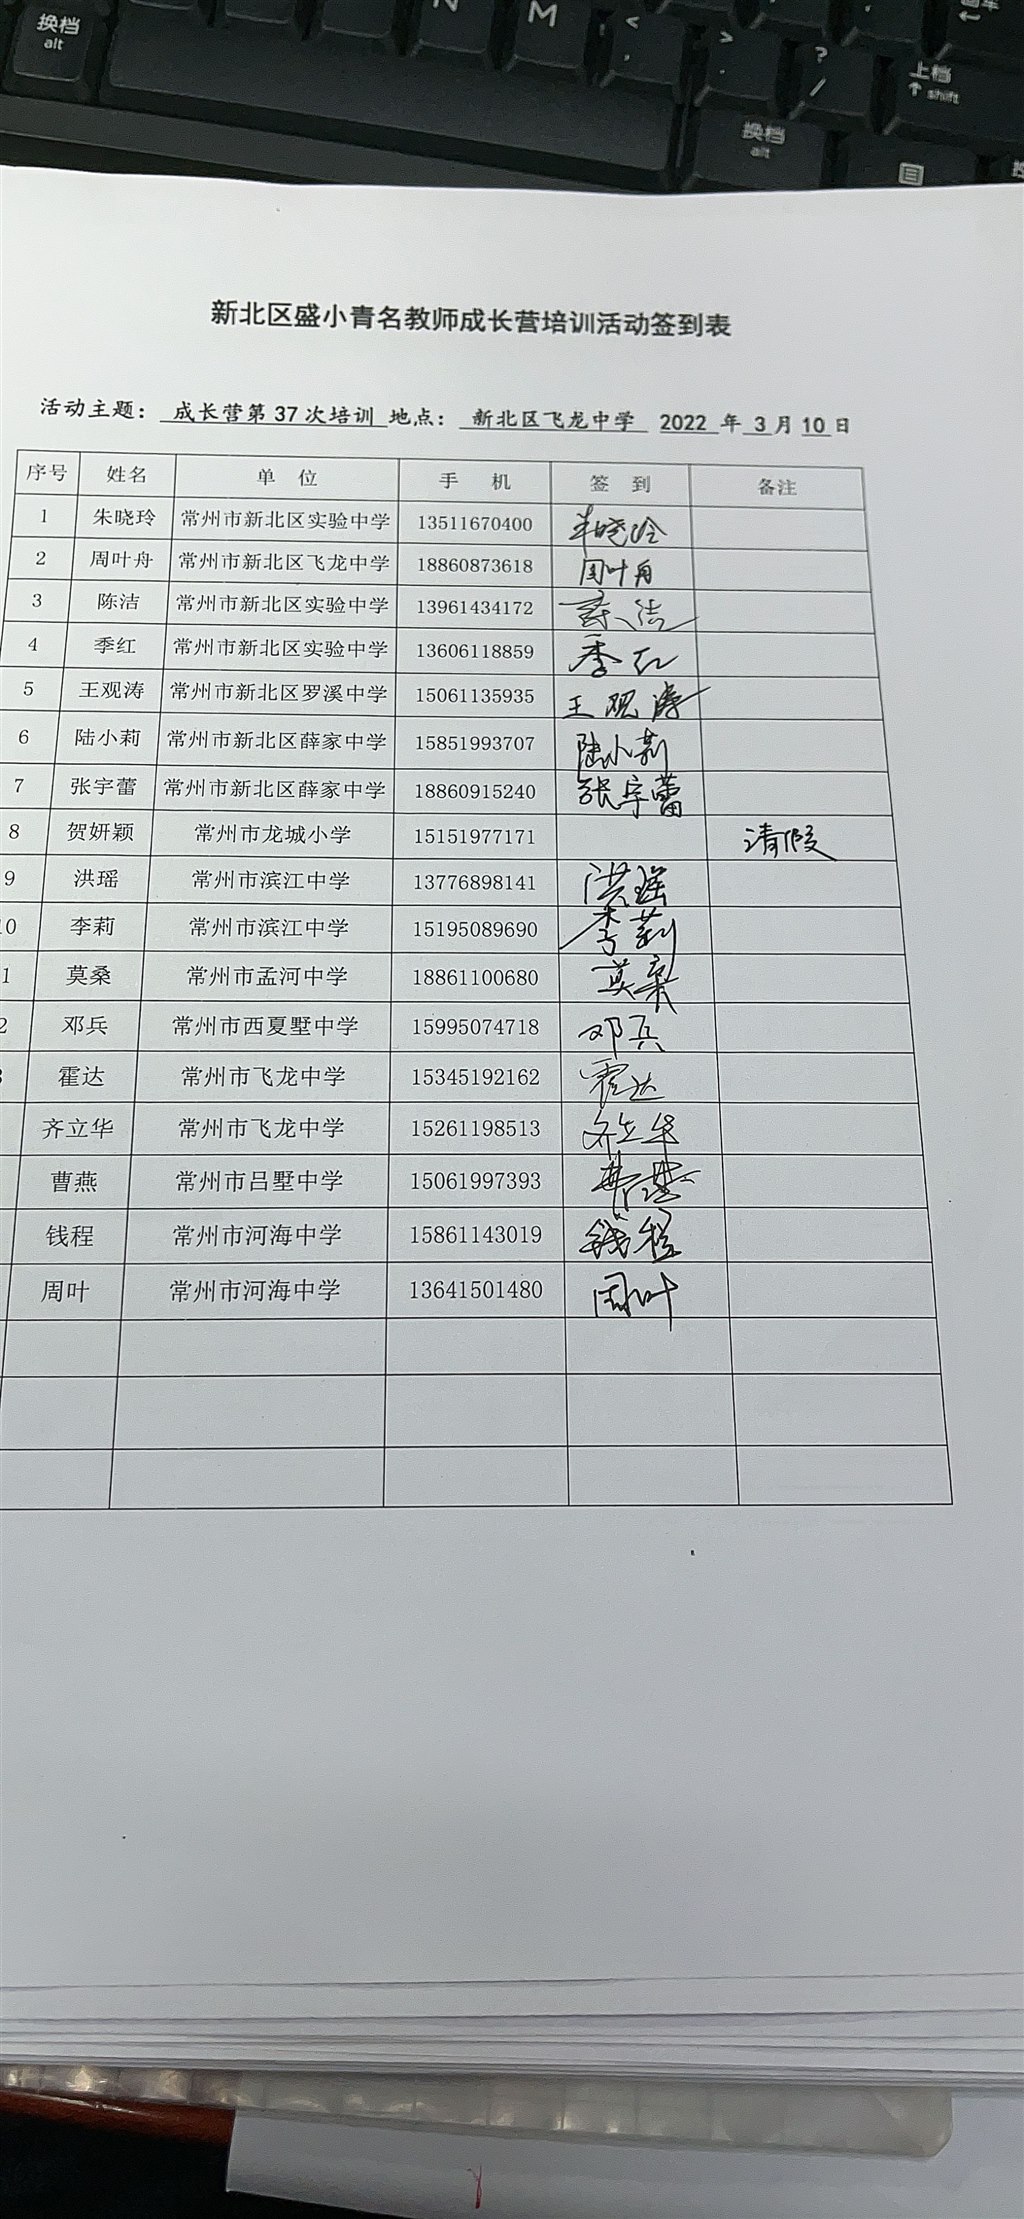 换档
alt
N
M
<
,
>
.
?
/
上档
↑ shift
换档
alt
新北区盛小青名教师成长营培训活动签到表
活动主题： 成长营第 37 次培训 地点： 新北区飞龙中学 2022 年 3 月 10 日
序号 姓名 单 位 手 机 签 到 备注
1 朱晓玲 常州市新北区实验中学 13511670400 朱晓玲
2 周叶舟 常州市新北区飞龙中学 18860873618 周叶舟
3 陈洁 常州市新北区实验中学 13961434172 陈洁
4 季红 常州市新北区实验中学 13606118859 季红
5 王观涛 常州市新北区罗溪中学 15061135935 王观涛
6 陆小莉 常州市新北区薛家中学 15851993707 陆小莉
7 张宇蕾 常州市新北区薛家中学 18860915240 张宇蕾
8 贺妍颖 常州市龙城小学 15151977171 请假
9 洪瑶 常州市滨江中学 13776898141 洪瑶
10 李莉 常州市滨江中学 15195089690 李莉
1 莫桑 常州市孟河中学 18861100680 莫桑
2 邓兵 常州市西夏墅中学 15995074718 邓兵
3 霍达 常州市飞龙中学 15345192162 霍达
齐立华 常州市飞龙中学 15261198513 齐立华
曹燕 常州市吕墅中学 15061997393 曹燕
钱程 常州市河海中学 15861143019 钱程
周叶 常州市河海中学 13641501480 周叶